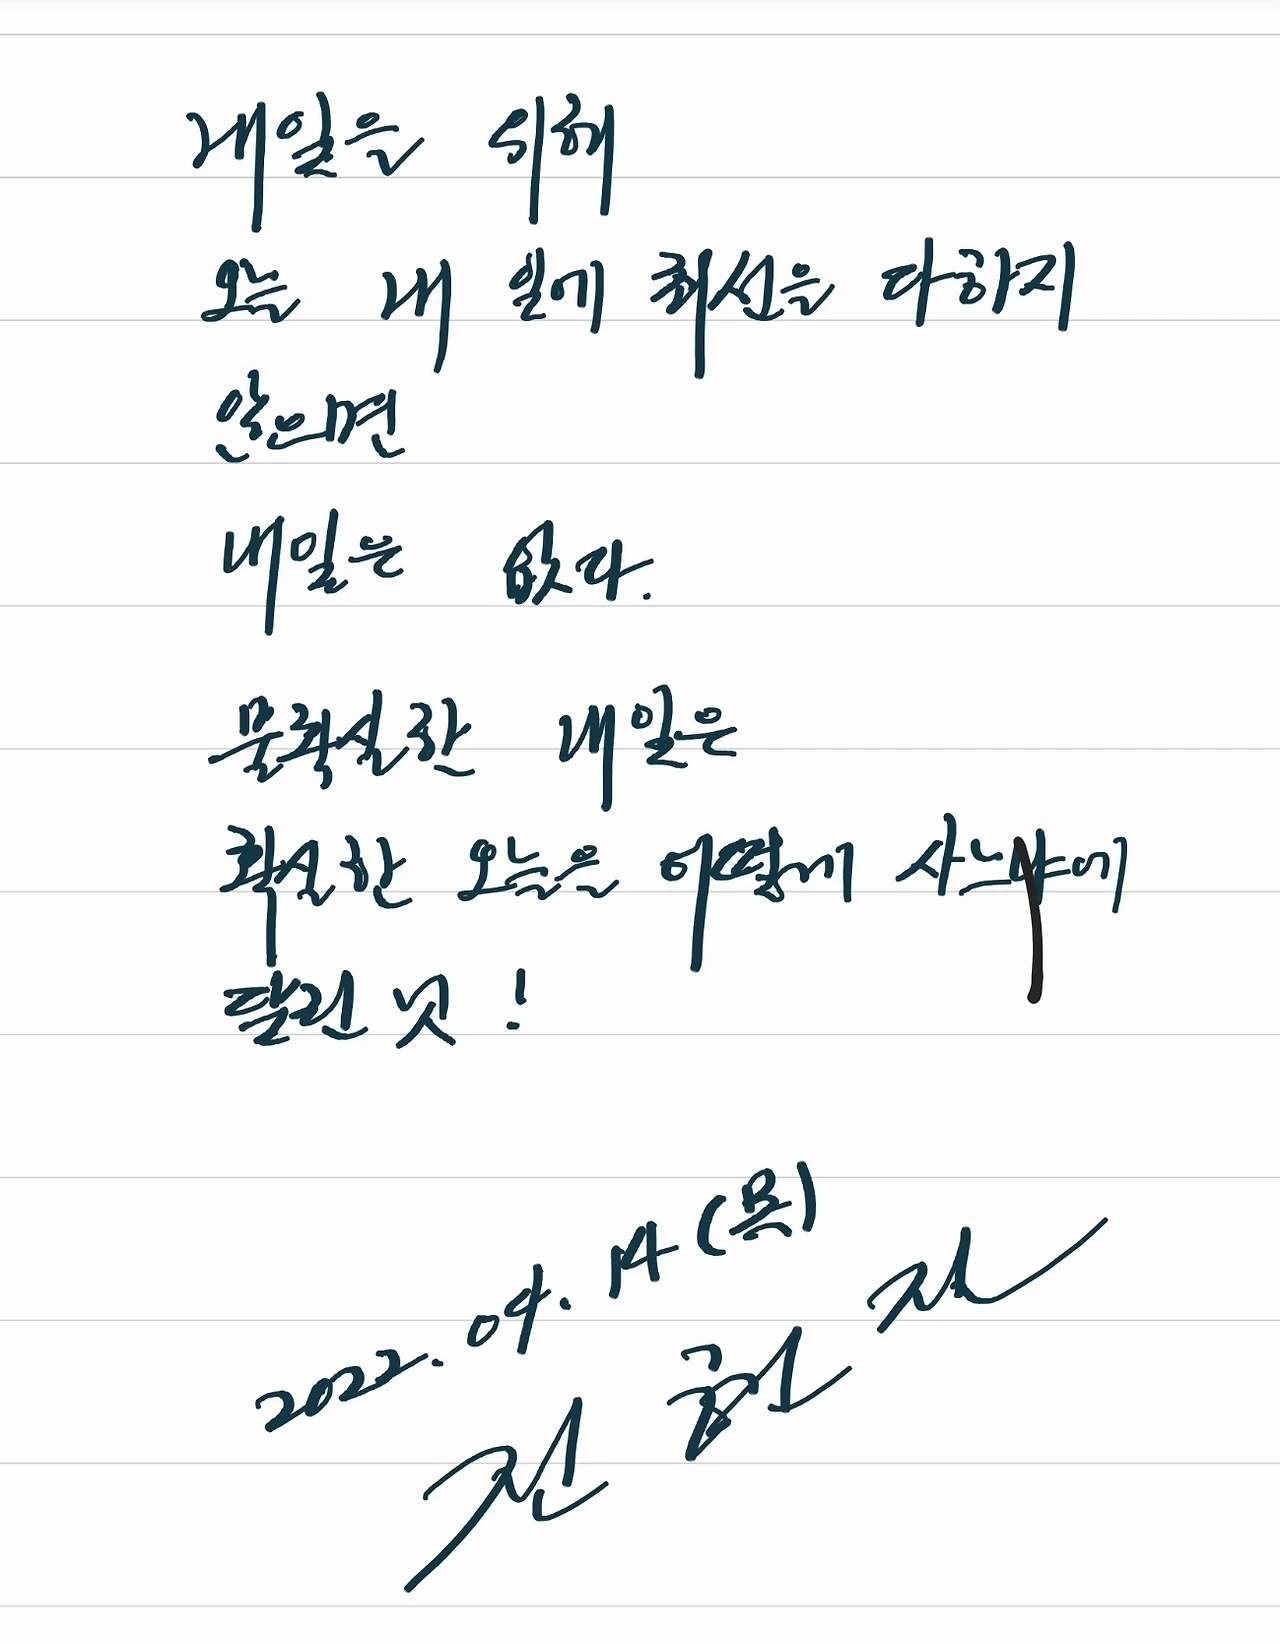 내일을 위해
오늘 내 일에 최선을 다하지
않으면
내일은 없다.
불확실한 내일은
확실한 오늘을 어떻게 사느냐에
달린 것!
2022. 04. 14 (목)